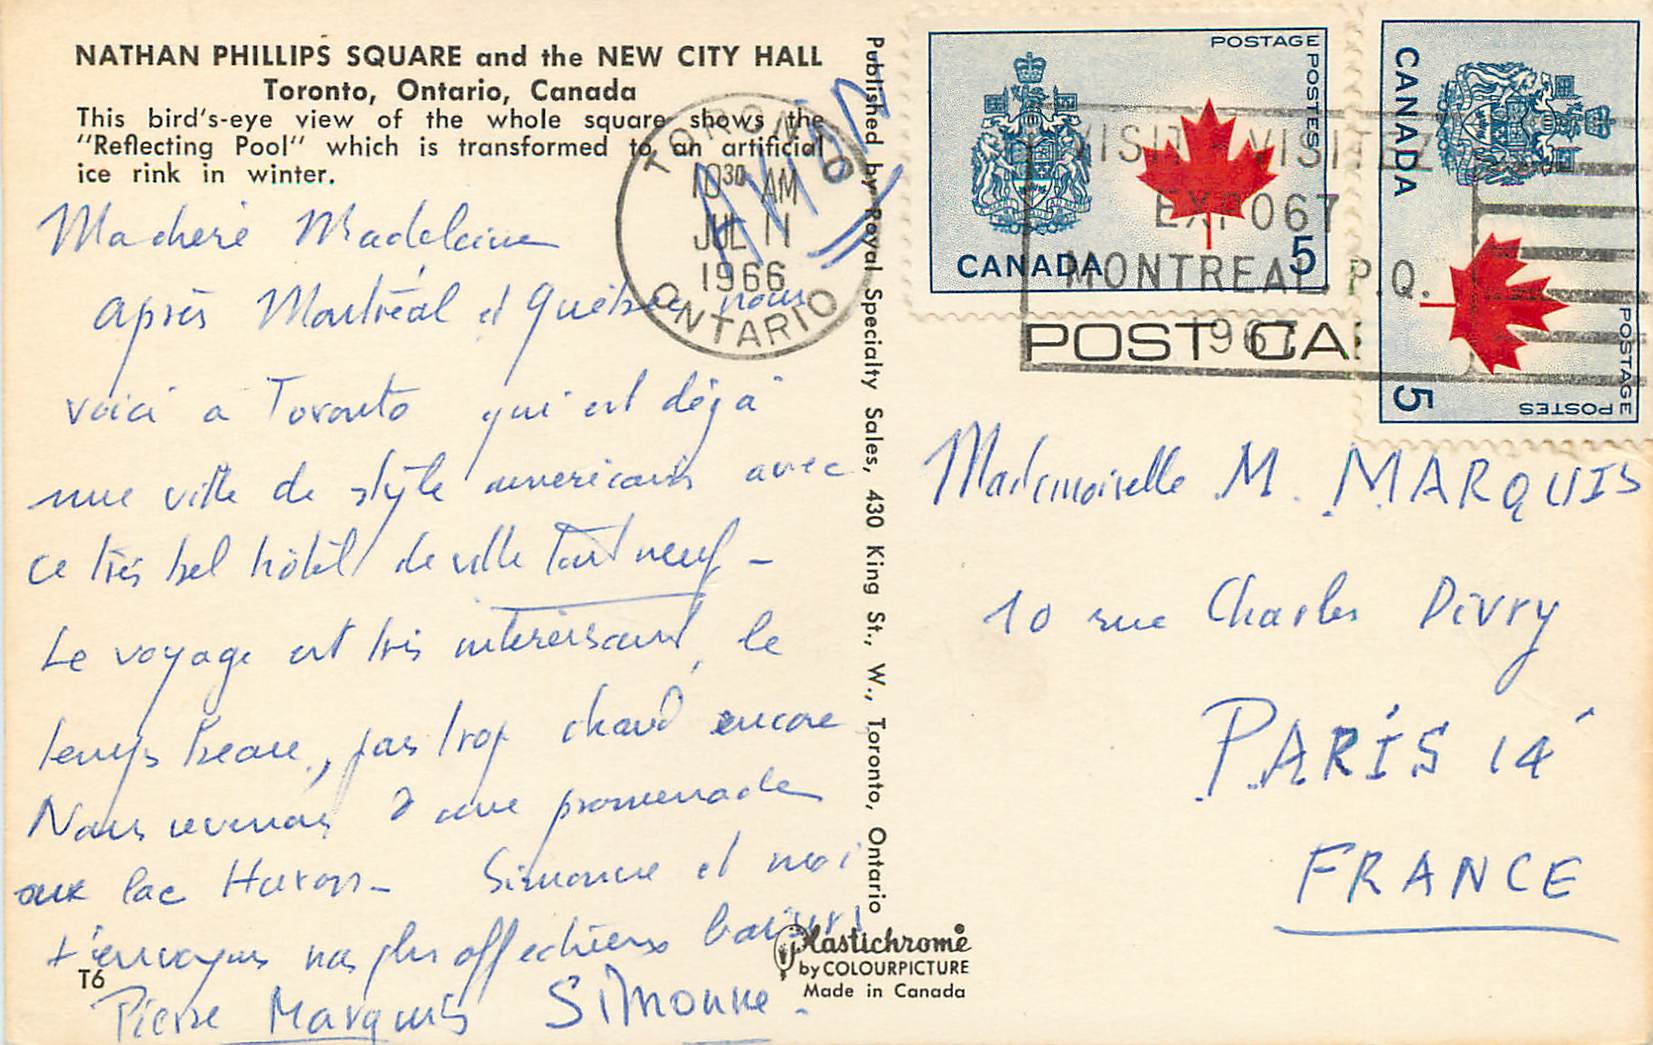 NATHAN PHILLIPS SQUARE and the NEW CITY HALL
Toronto, Ontario, Canada
This bird's-eye view of the whole square shows the
"Reflecting Pool" which is transformed to an artificial
ice rink in winter.
AVION
TORONTO
10 30 AM
JUL 11
1966
ONTARIO
Ma chère Madeleine
après Montréal et Québec nous
voici à Toronto qui est déjà
une ville de style américain avec
ce très bel hôtel de ville tout neuf -
Le voyage est très intéressant, le
temps beau, pas trop chaud encore
Nous revenons d'une promenade
aux lac Huron - Simonne et moi
t'envoyons nos plus affectueux baisers
Pierre Marquis Simonne.
T6
Published by Royal Specialty Sales, 430 King St., W., Toronto, Ontario
Plastichrome
by COLOURPICTURE
Made in Canada
POSTAGE
POSTES
CANADA 5
CANADA
5
POSTAGE
POSTES
VISIT VISITEZ
EXPO67
MONTREAL, P.Q.
1967
POST CA
Mademoiselle M. MARQUIS
10 rue Charles Divry
PARIS 14
FRANCE